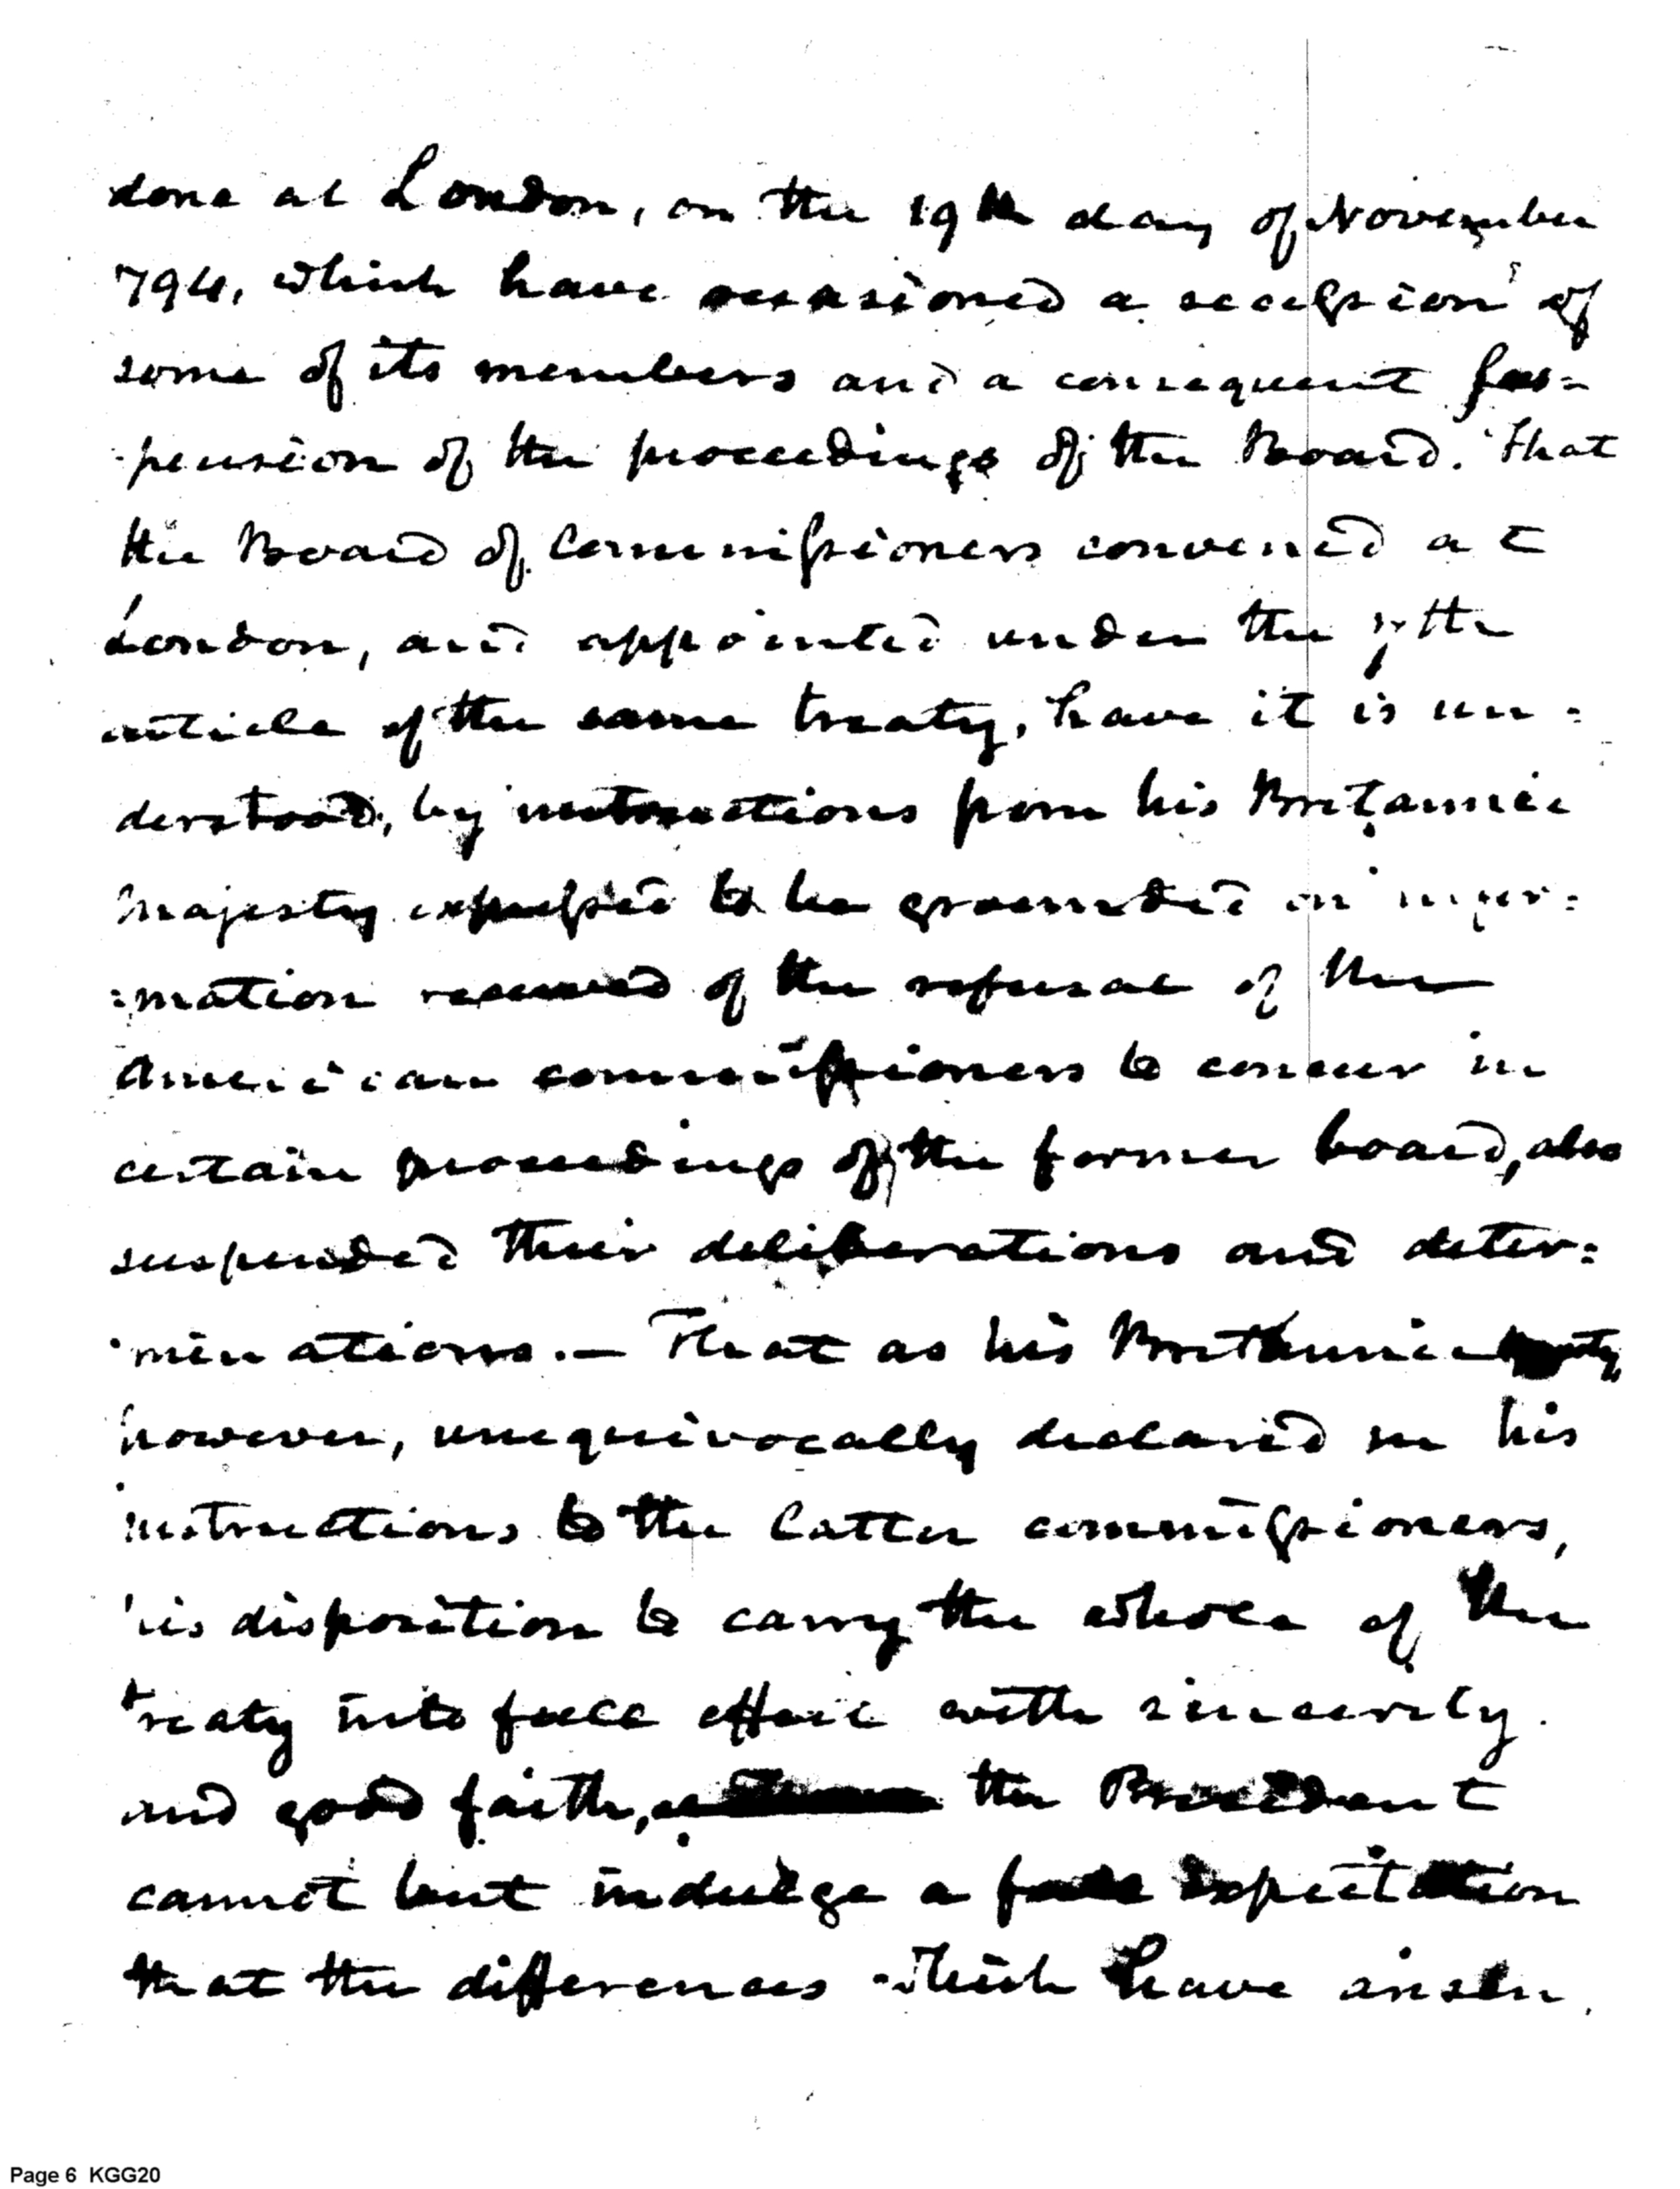 done at London, on the 19th day of November
794, which have occasioned a secession of
some of its members and a consequent sus=
pension of the proceedings of the Board. That
the Board of Commissioners convened at
London, and appointed under the 7th
article of the same treaty, have it is un=
derstood, by instructions from his Britannic
Majesty expressed to be grounded on infor=
=mation received of the refusal of the
American commissioners to concur in
certain proceedings of the former board, also
suspended their deliberations and deter=
minations.— That as his Britannic
however, unequivocally declared in his
instructions to the latter commissioners,
his disposition to carry the whole of the
treaty into full effect with sincerity
and good faith, the President
cannot but indulge a full expectation
that the differences which have arisen
Page 6 KGG20